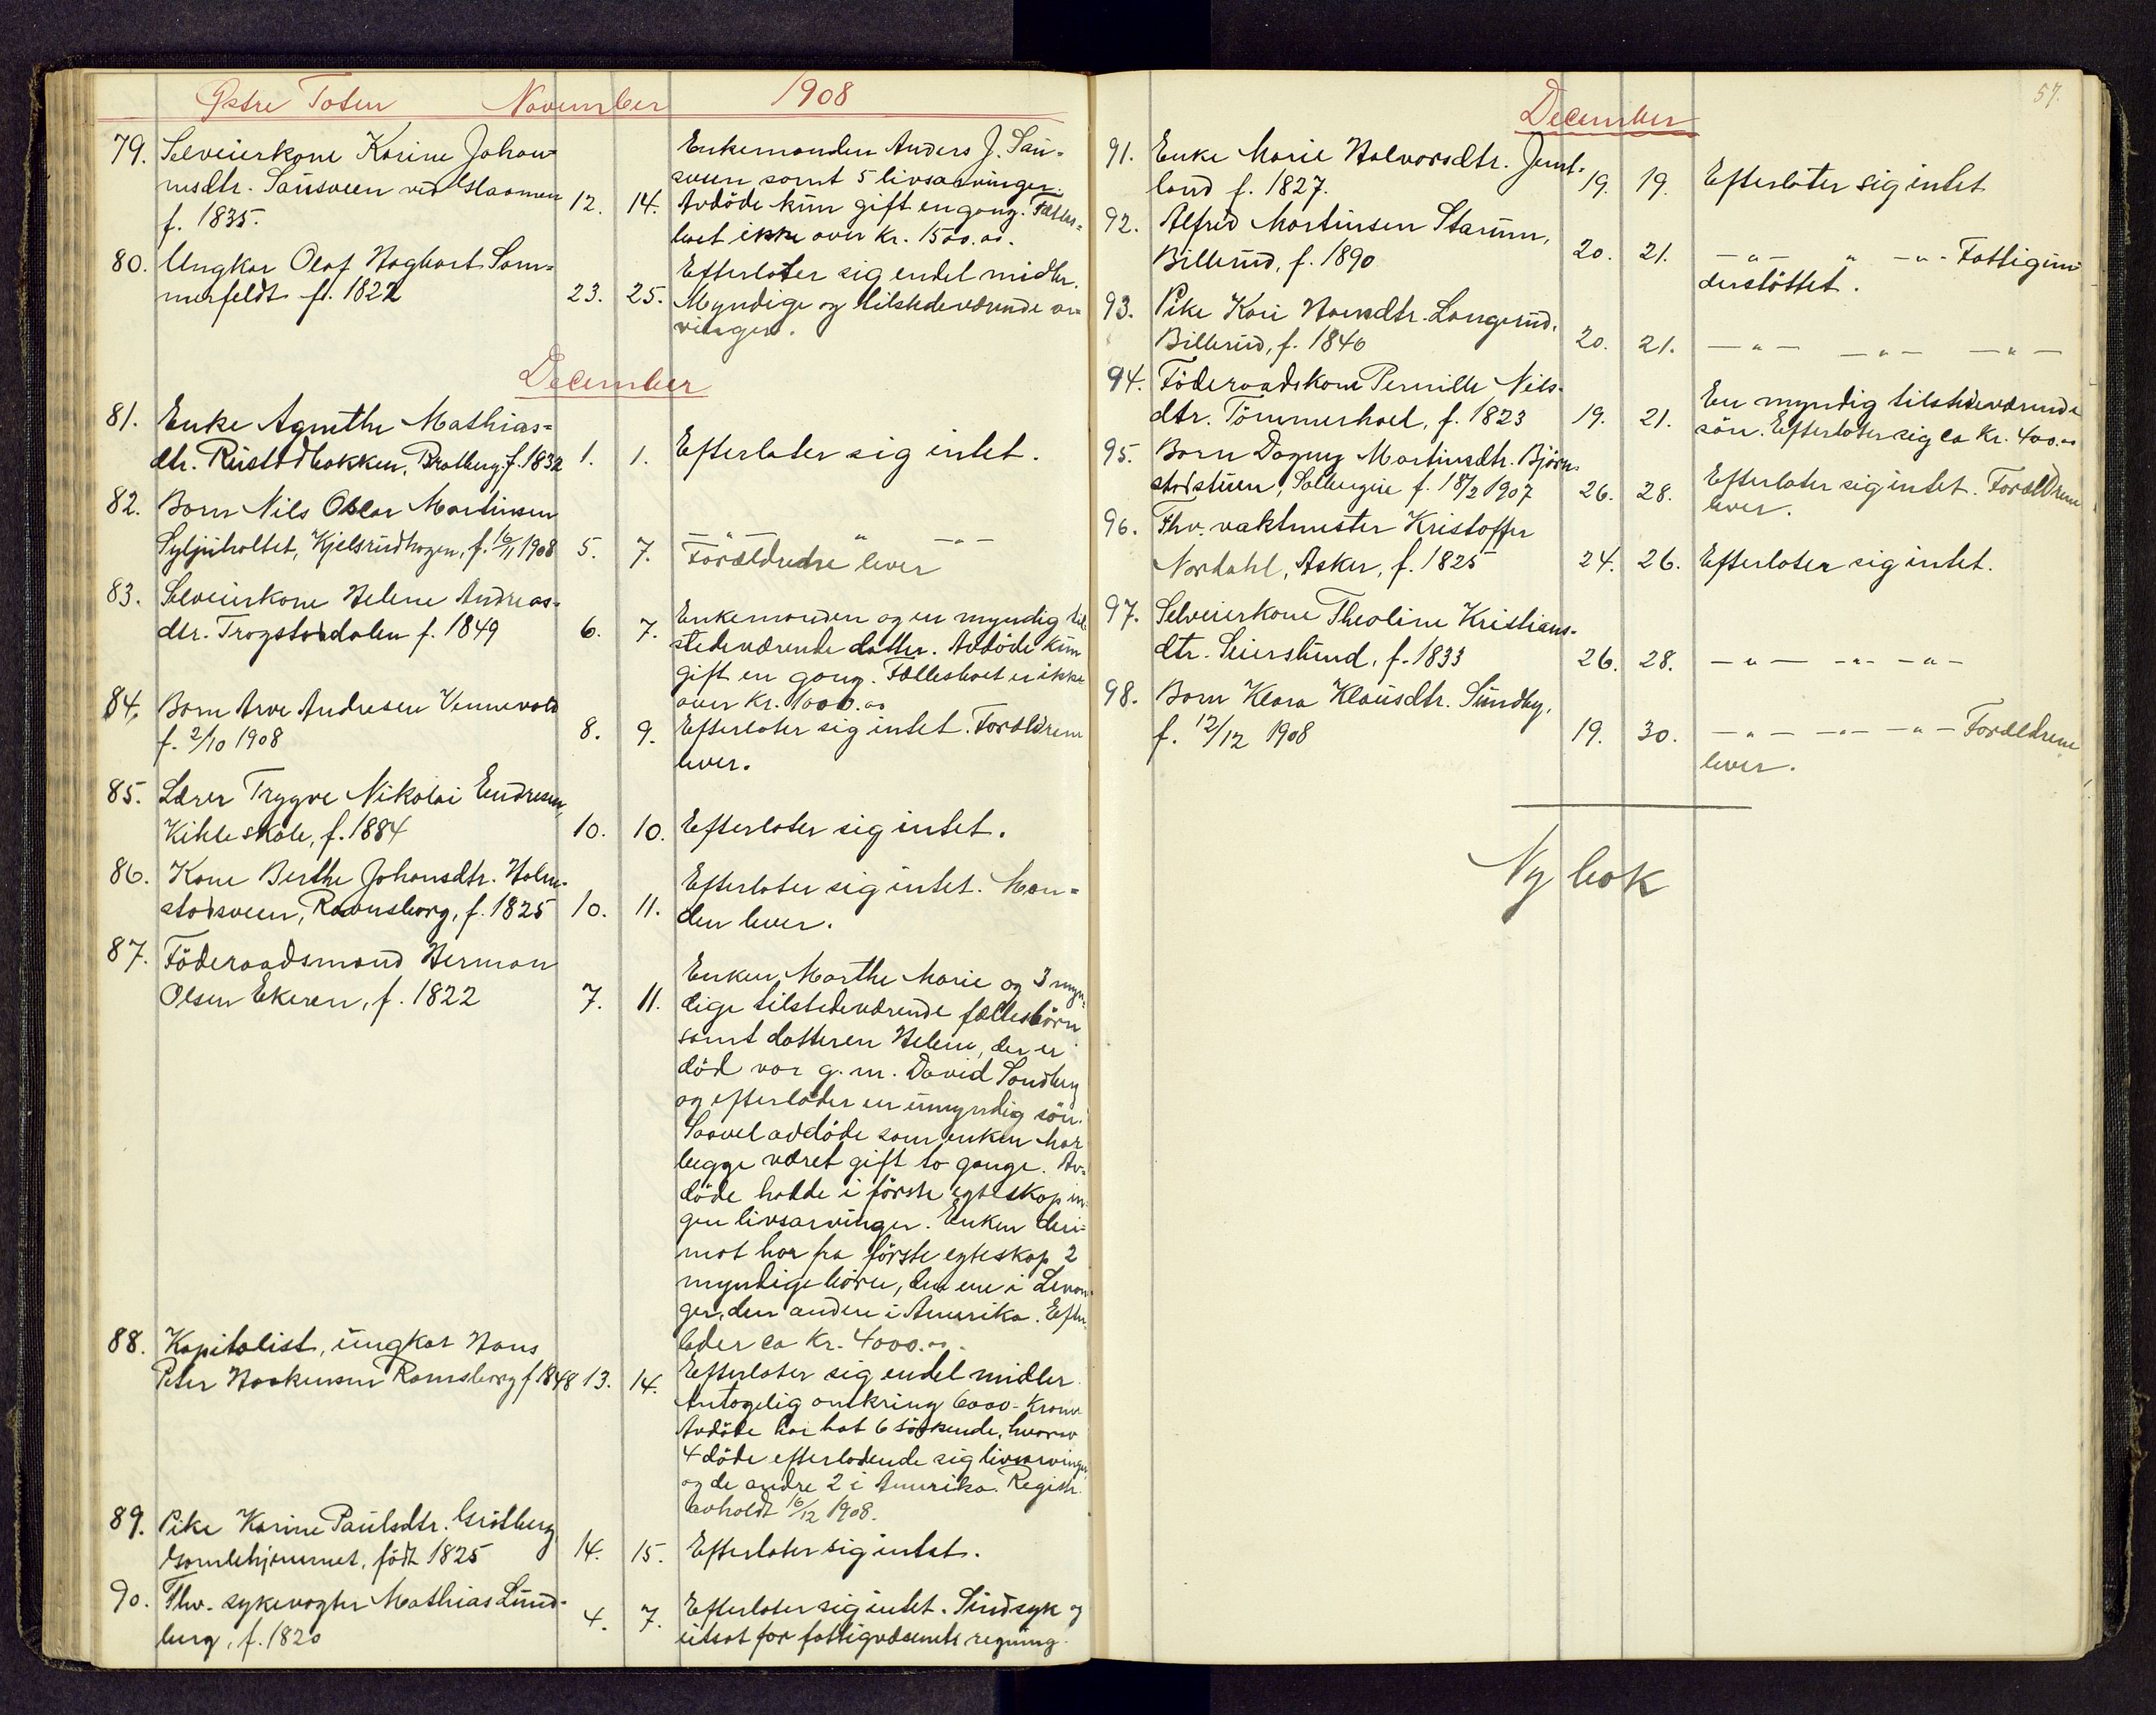 Østre Toten November 1908
79. Selveierkone Karine Johan-
nesdtr. Sansveen ved Glaamen
f. 1835. 12. 14.
Enkemanden Anders J. San-
sveen samt 5 livsarvinger.
Avdöde kun gift engang. Fælles-
boet ikke over Kr. 1500.00.
80. Ungkar Olaf Hagbart Som-
merfeldt f. 1822 23. 25.
Efterlater sig endel midler.
Myndige og tilstedeværende ar-
vinger.
December
81. Enke Agnethe Mathias-
dtr. Rustadbakken, Bratberg, f. 1832 1. 1. Efterlater sig intet.
82. Barn Nils Oskar Martinsen
Syljuholtet, Kjelsrudhagen, f. 16/11 1908 5. 7. —"— " —"—
Forældrene lever
83. Selveierkone Helene Andreas-
dtr. Trogstaddalen f. 1849 6. 7.
Enkemanden og en myndig til-
stedeværende datter. Avdöde kun
gift en gang. Fællesboet er ikke
over Kr. 1000.00
84. Barn Arve Andresen Vennevold
f. 2/10 1908 8. 9. Efterlater sig intet. Forældrene
lever.
85. Lærer Trygve Nikolai Endresen,
Kihle skole, f. 1884 10. 10. Efterlater sig intet.
86. Kone Berthe Johansdtr. Holm-
stadsveen, Ravnsborg, f. 1825 10. 11.
Efterlater sig intet. Man-
den lever.
87. Föderaadsmand Herman
Olsen Ekeren, f. 1822 7. 11.
Enken Marthe Marie og 3 myn-
dige tilstedeværende fællesbörn
samt datteren Helene, der er
död var g. m. David Sandberg
og efterlader en umyndig sön.
Saavel avdöde som enken har
begge været gift to gange. Av-
döde hadde i förste egteskap in-
gen livsarvinger. Enken deri-
mot har fra förste egteskap 2
myndige börn, den ene i Levan-
ger, den anden i Amerika. Efter-
lader ca Kr. 4000.00.
88. Kapitalist, ungkar Hans
Peter Haakensen Ramsberg f. 1848 13. 14.
Efterlater sig endel midler.
Antagelig omkring 6000.- Kroner
Avdöde har hat 6 söskende, hvorav
4 döde efterladende sig livsarvinger,
og de andre 2 i Amerika. Registr.
avholdt 16/12 1908.
89. Pike Karine Paulsdtr. Grötberg,
Gamlehjemmet, födt 1825 14. 15. Efterlater sig intet.
90. Fhv. sykevogter Mathias Lund-
berg, f. 1820 4. 7.
Efterlater sig intet. Sindsyk og
utsat for fattigvæsenets regning.
57.
December
91. Enke Marie Halvorsdtr. Jemt-
land f. 1827. 19. 19. Efterlater sig intet
92. Alfred Martinsen Staum,
Billerud, f. 1890 20. 21. —"— " —"— Fattigun-
derstöttet.
93. Pike Kari Hansdtr. Langerud,
Billerud, f. 1840 20. 21. —"— —"— —"—
94. Föderaadskone Pernille Nils-
dtr. Tömmerhoel, f. 1823 19. 21.
En myndig tilstedeværende
sön. Efterlater sig ca Kr. 400.00
95. Barn Dagny Martinsdtr. Björn-
stadstuen, f. 18/2 1907 26. 28.
Efterlater sig intet. Forældrene
lever.
96. Fhv. vaktmester Kristoffer
Nordahl, Asker, f. 1825 24. 26. Efterlater sig intet.
97. Selveierkone Theoline Kristians-
dtr. Seierslund, f. 1833 26. 28. —"— —"— —"—
98. Barn Klara Klausdtr. Sundby,
f. 12/12 1908 19. 30. —"— —"— —"— Forældrene
lever.
Ny bok